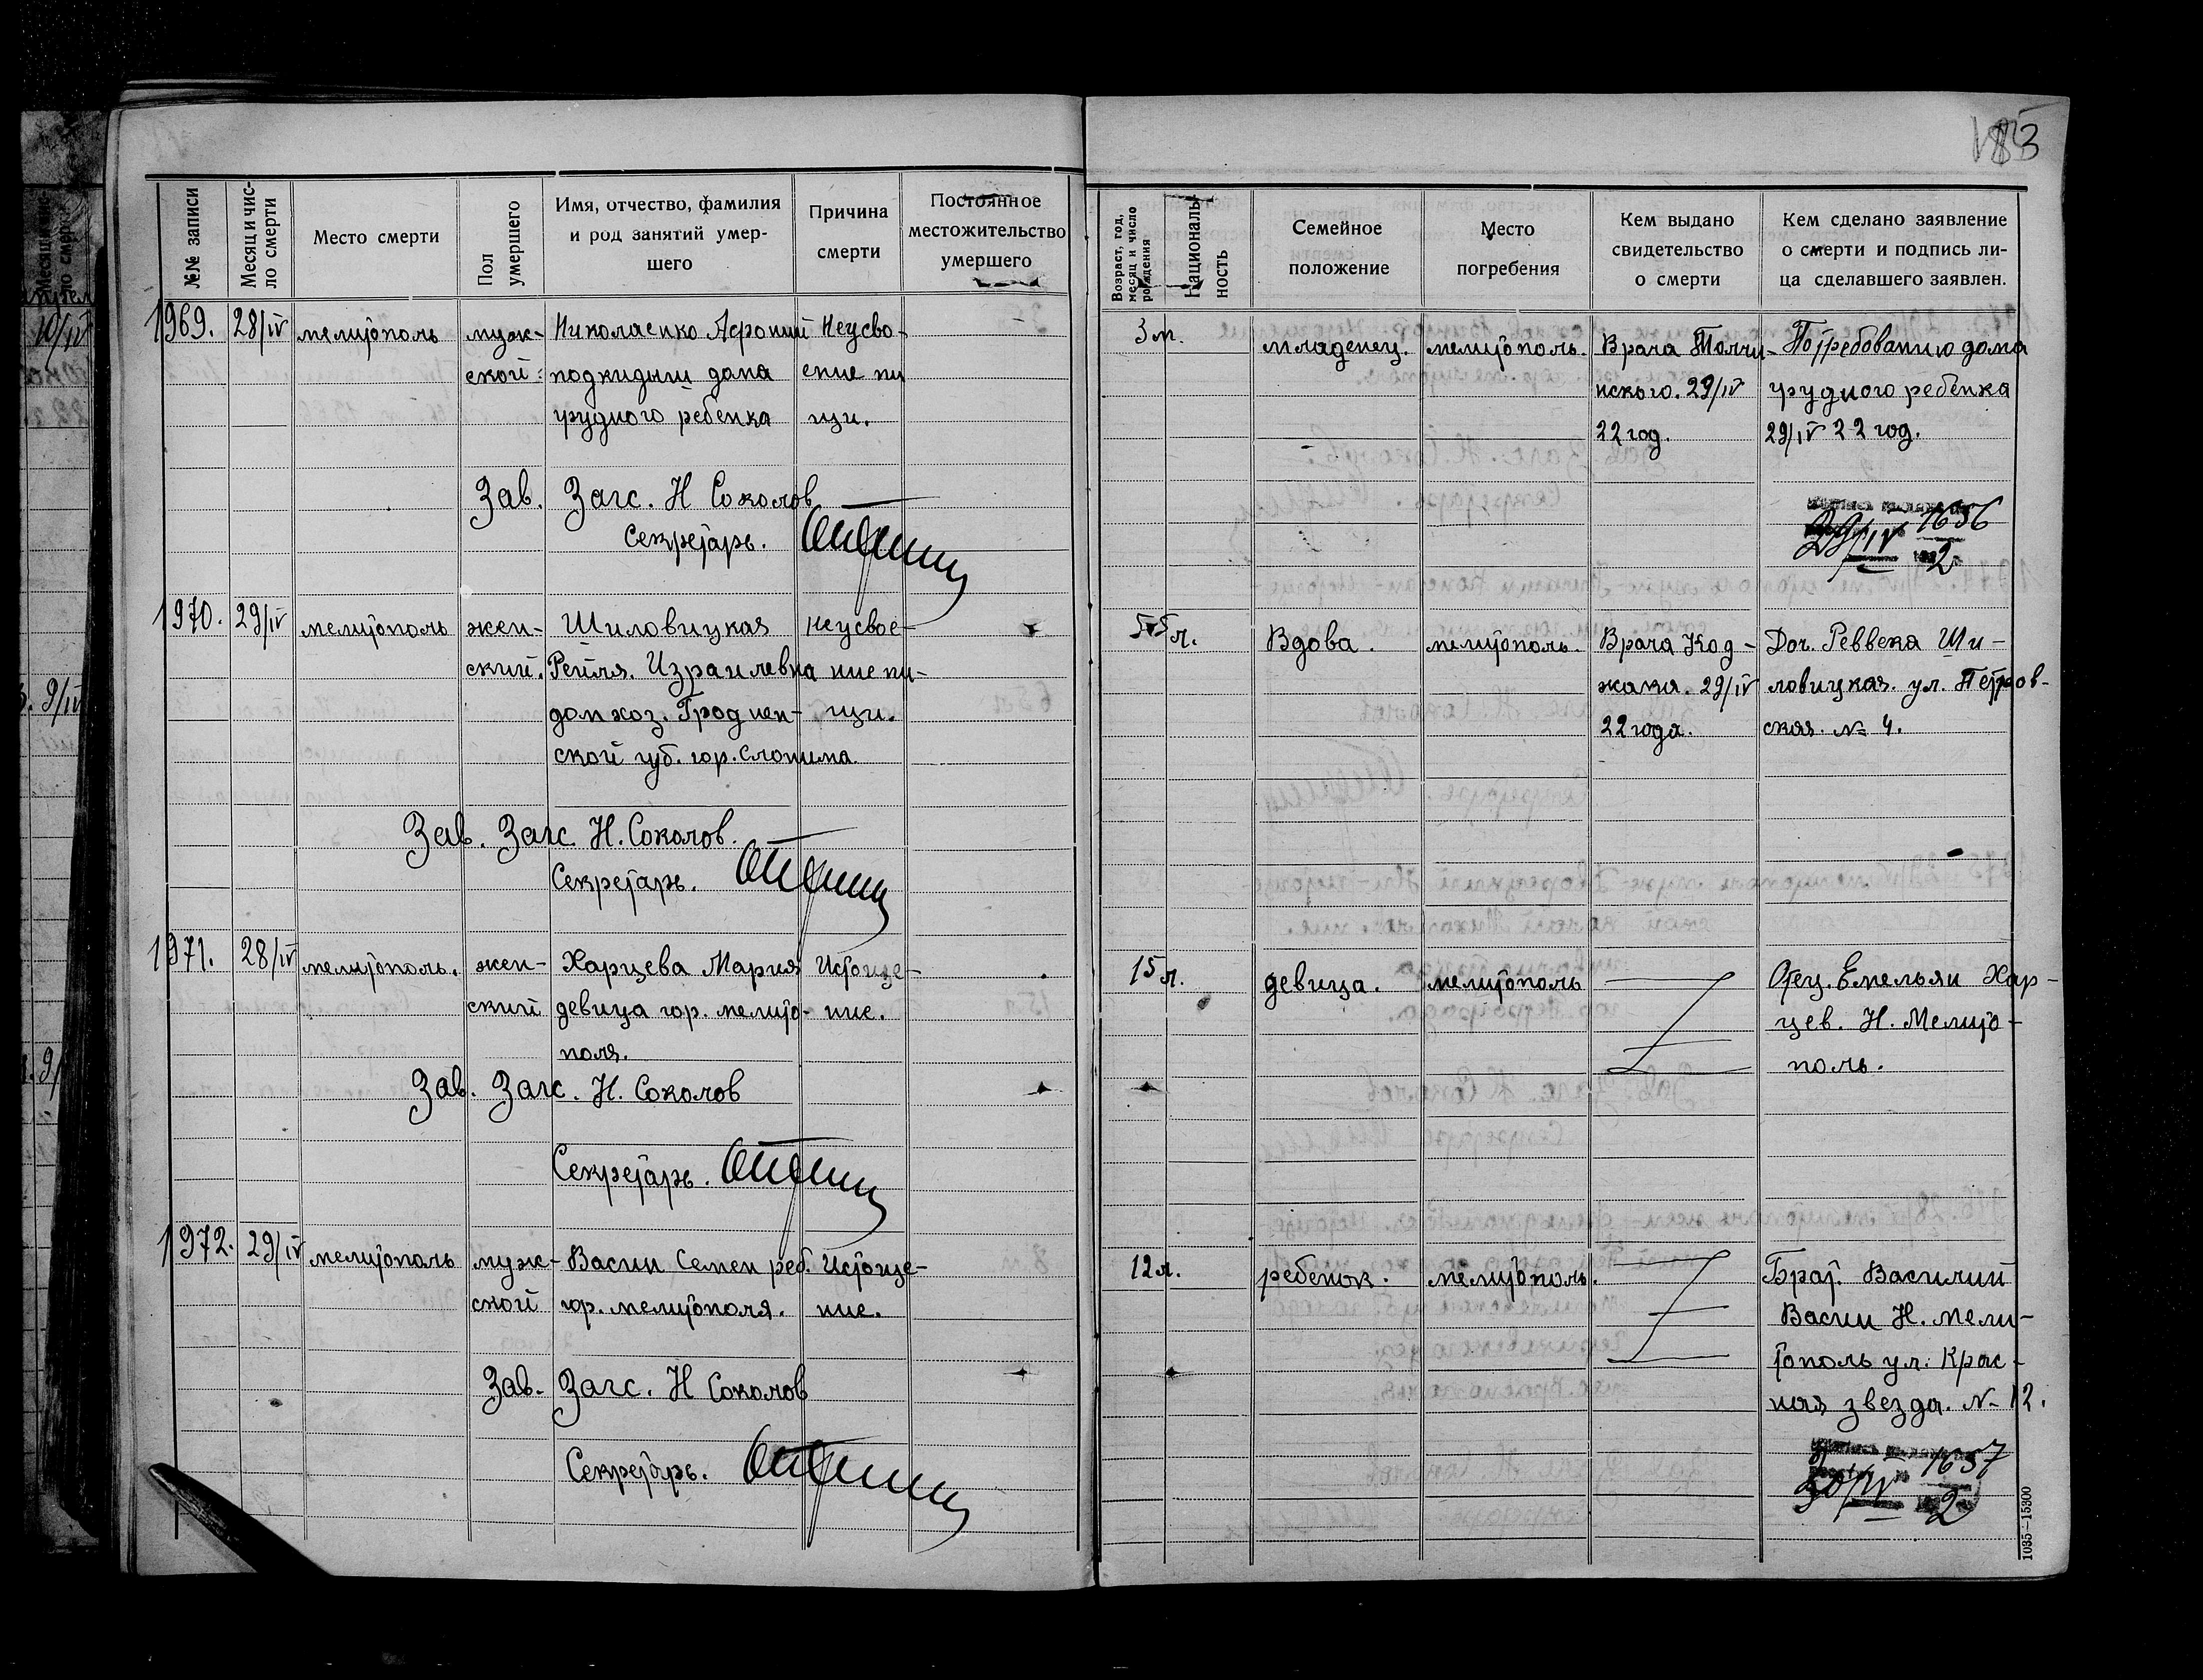 183
№№ записи
Месяц и чис-
ло смерти
Место смерти
Пол
умершего
Имя, отчество, фамилия
и род занятий умер-
шего
Причина
смерти
Постоянное
местожительство
умершего
Возраст, год,
месяц и число
рождения
Националь-
ность
Семейное
положение
Место
погребения
Кем выдано
свидетельство
о смерти
Кем сделано заявление
о смерти и подпись ли-
ца сделавшего заявлен.
1969. 28/IV мелитополь
муж-
ской
Николаенко Афроний
подкидыш дома
грудного ребенка
Неусво-
ение пи
щи.
3 м.
младенец.
мелитополь.
Врача
нского. 29/IV
22 год.
По требованию дома
грудного ребенка
29/IV 22 год.
Зав. Загс. Н Соколов
Секретарь.
29/IV 1656
2
1970. 29/IV мелитополь
жен-
ский.
Шиловицкая
Рейля. Израилевна
дом хоз. Гроднен-
ской губ. гор. Слонима.
Неусвое-
ние пи-
щи.
55 л.
Вдова.
мелитополь.
Врача Код-
жака. 29/IV
22 года.
Доч. Реввека Ши-
ловицкая. ул. Петров-
ская. № 4.
Зав. Загс. Н. Соколов.
Секретарь.
1971. 28/IV мелитополь.
жен-
ский
Харцева Мария
девица гор. мелито-
поля.
Истоще-
ние.
15 л.
девица.
мелитополь
Отец. Емельян Хар-
цев. Н. Мелито-
поль.
Зав. Загс. Н. Соколов
Секретарь.
1972. 29/IV мелитополь
муж-
ской
Васин Семен реб.
гор. мелитополя.
Истоще-
ние.
12 л.
ребенок.
мелитополь.
Брат. Василий
Васин Н. мели-
тополь ул. Крас-
ная звезда. № 12.
Зав. Загс. Н Соколов
Секретарь.
30/IV 1657
2
1035—15300